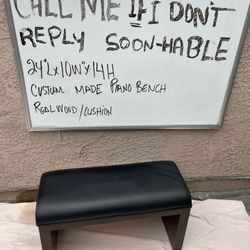 CALL ME IF I DON'T
REPLY SOON-HABLE
24"Lx10W"x14H
CUSTUM MADE PIANO BENCH
REAL WOOD/CUSHION